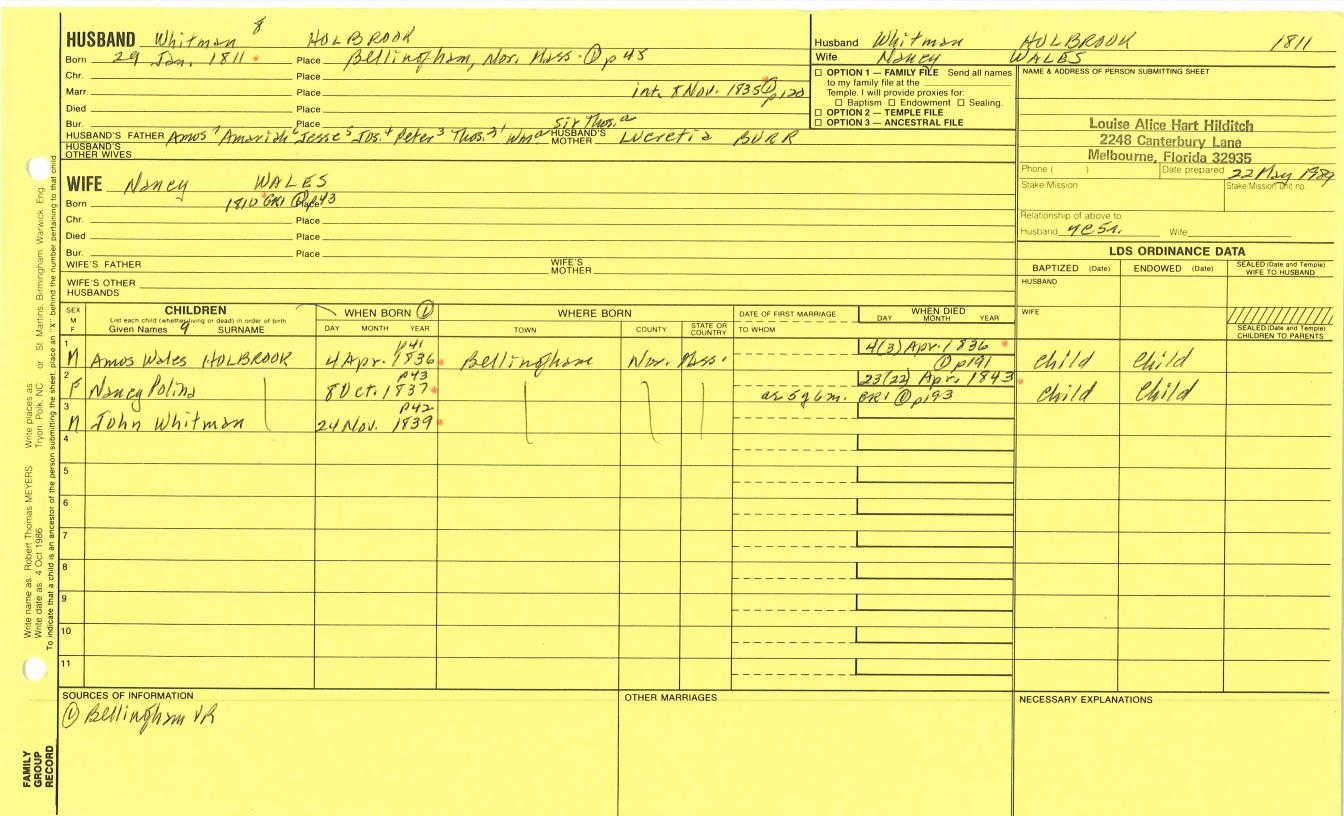 HUSBAND Whitman 8 HOLBROOK
Born 29 Jan. 1811 Place Bellingham, Nor. Mass. ① p45
Chr. Place
Marr. Place int. 8 Nov. 1835 ① p120
Died Place
Bur. Place
HUSBAND'S FATHER Amos 7 Amariah 6 Jesse 5 Jos. 4 Peter 3 Thos. 2 1 Wm. a Sir Thos. a HUSBAND'S MOTHER Lucretia BURR
HUSBAND'S OTHER WIVES
WIFE Nancy WALES
Born 1810 GR1 ① p43 Place
Chr. Place
Died Place
Bur. Place
WIFE'S FATHER WIFE'S MOTHER
WIFE'S OTHER HUSBANDS
Husband Whitman HOLBROOK 1811
Wife Nancy WALES
☐ OPTION 1 — FAMILY FILE Send all names
to my family file at the
Temple. I will provide proxies for:
☐ Baptism ☐ Endowment ☐ Sealing.
☐ OPTION 2 — TEMPLE FILE
☐ OPTION 3 — ANCESTRAL FILE
NAME & ADDRESS OF PERSON SUBMITTING SHEET
Louise Alice Hart Hilditch
2248 Canterbury Lane
Melbourne, Florida 32935
Phone ( ) Date prepared 22 May 1989
Stake/Mission Stake/Mission unit no.
Relationship of above to
Husband Wife
LDS ORDINANCE DATA
BAPTIZED (Date) ENDOWED (Date) SEALED (Date and Temple) WIFE TO HUSBAND
HUSBAND
WIFE
SEALED (Date and Temple) CHILDREN TO PARENTS
SEX M F
CHILDREN
List each child (whether living or dead) in order of birth
Given Names 9 SURNAME
WHEN BORN ①
DAY MONTH YEAR
WHERE BORN
TOWN COUNTY STATE OR COUNTRY
DATE OF FIRST MARRIAGE
TO WHOM
WHEN DIED
DAY MONTH YEAR
1 M Amos Wales HOLBROOK p41 4 Apr. 1836 Bellingham Nor. Mass. 4(3) Apr. 1836 ① p191 Child Child
2 F Nancy Polina p43 8 Oct. 1837 23(22) Apr. 1843 ae 5y6m. GR1 ① p193 Child Child
3 M John Whitman p42 24 Nov. 1839
4
5
6
7
8
9
10
11
SOURCES OF INFORMATION
① Bellingham VR
OTHER MARRIAGES
NECESSARY EXPLANATIONS
Write name as: Robert Thomas MEYERS
Write date as: 4 Oct 1986
Write places as: Tryon, Polk, NC or St. Martins, Birmingham, Warwick, Eng.
To indicate that a child is an ancestor of the person submitting the sheet, place an "X" behind the number pertaining to that child.
FAMILY
GROUP
RECORD